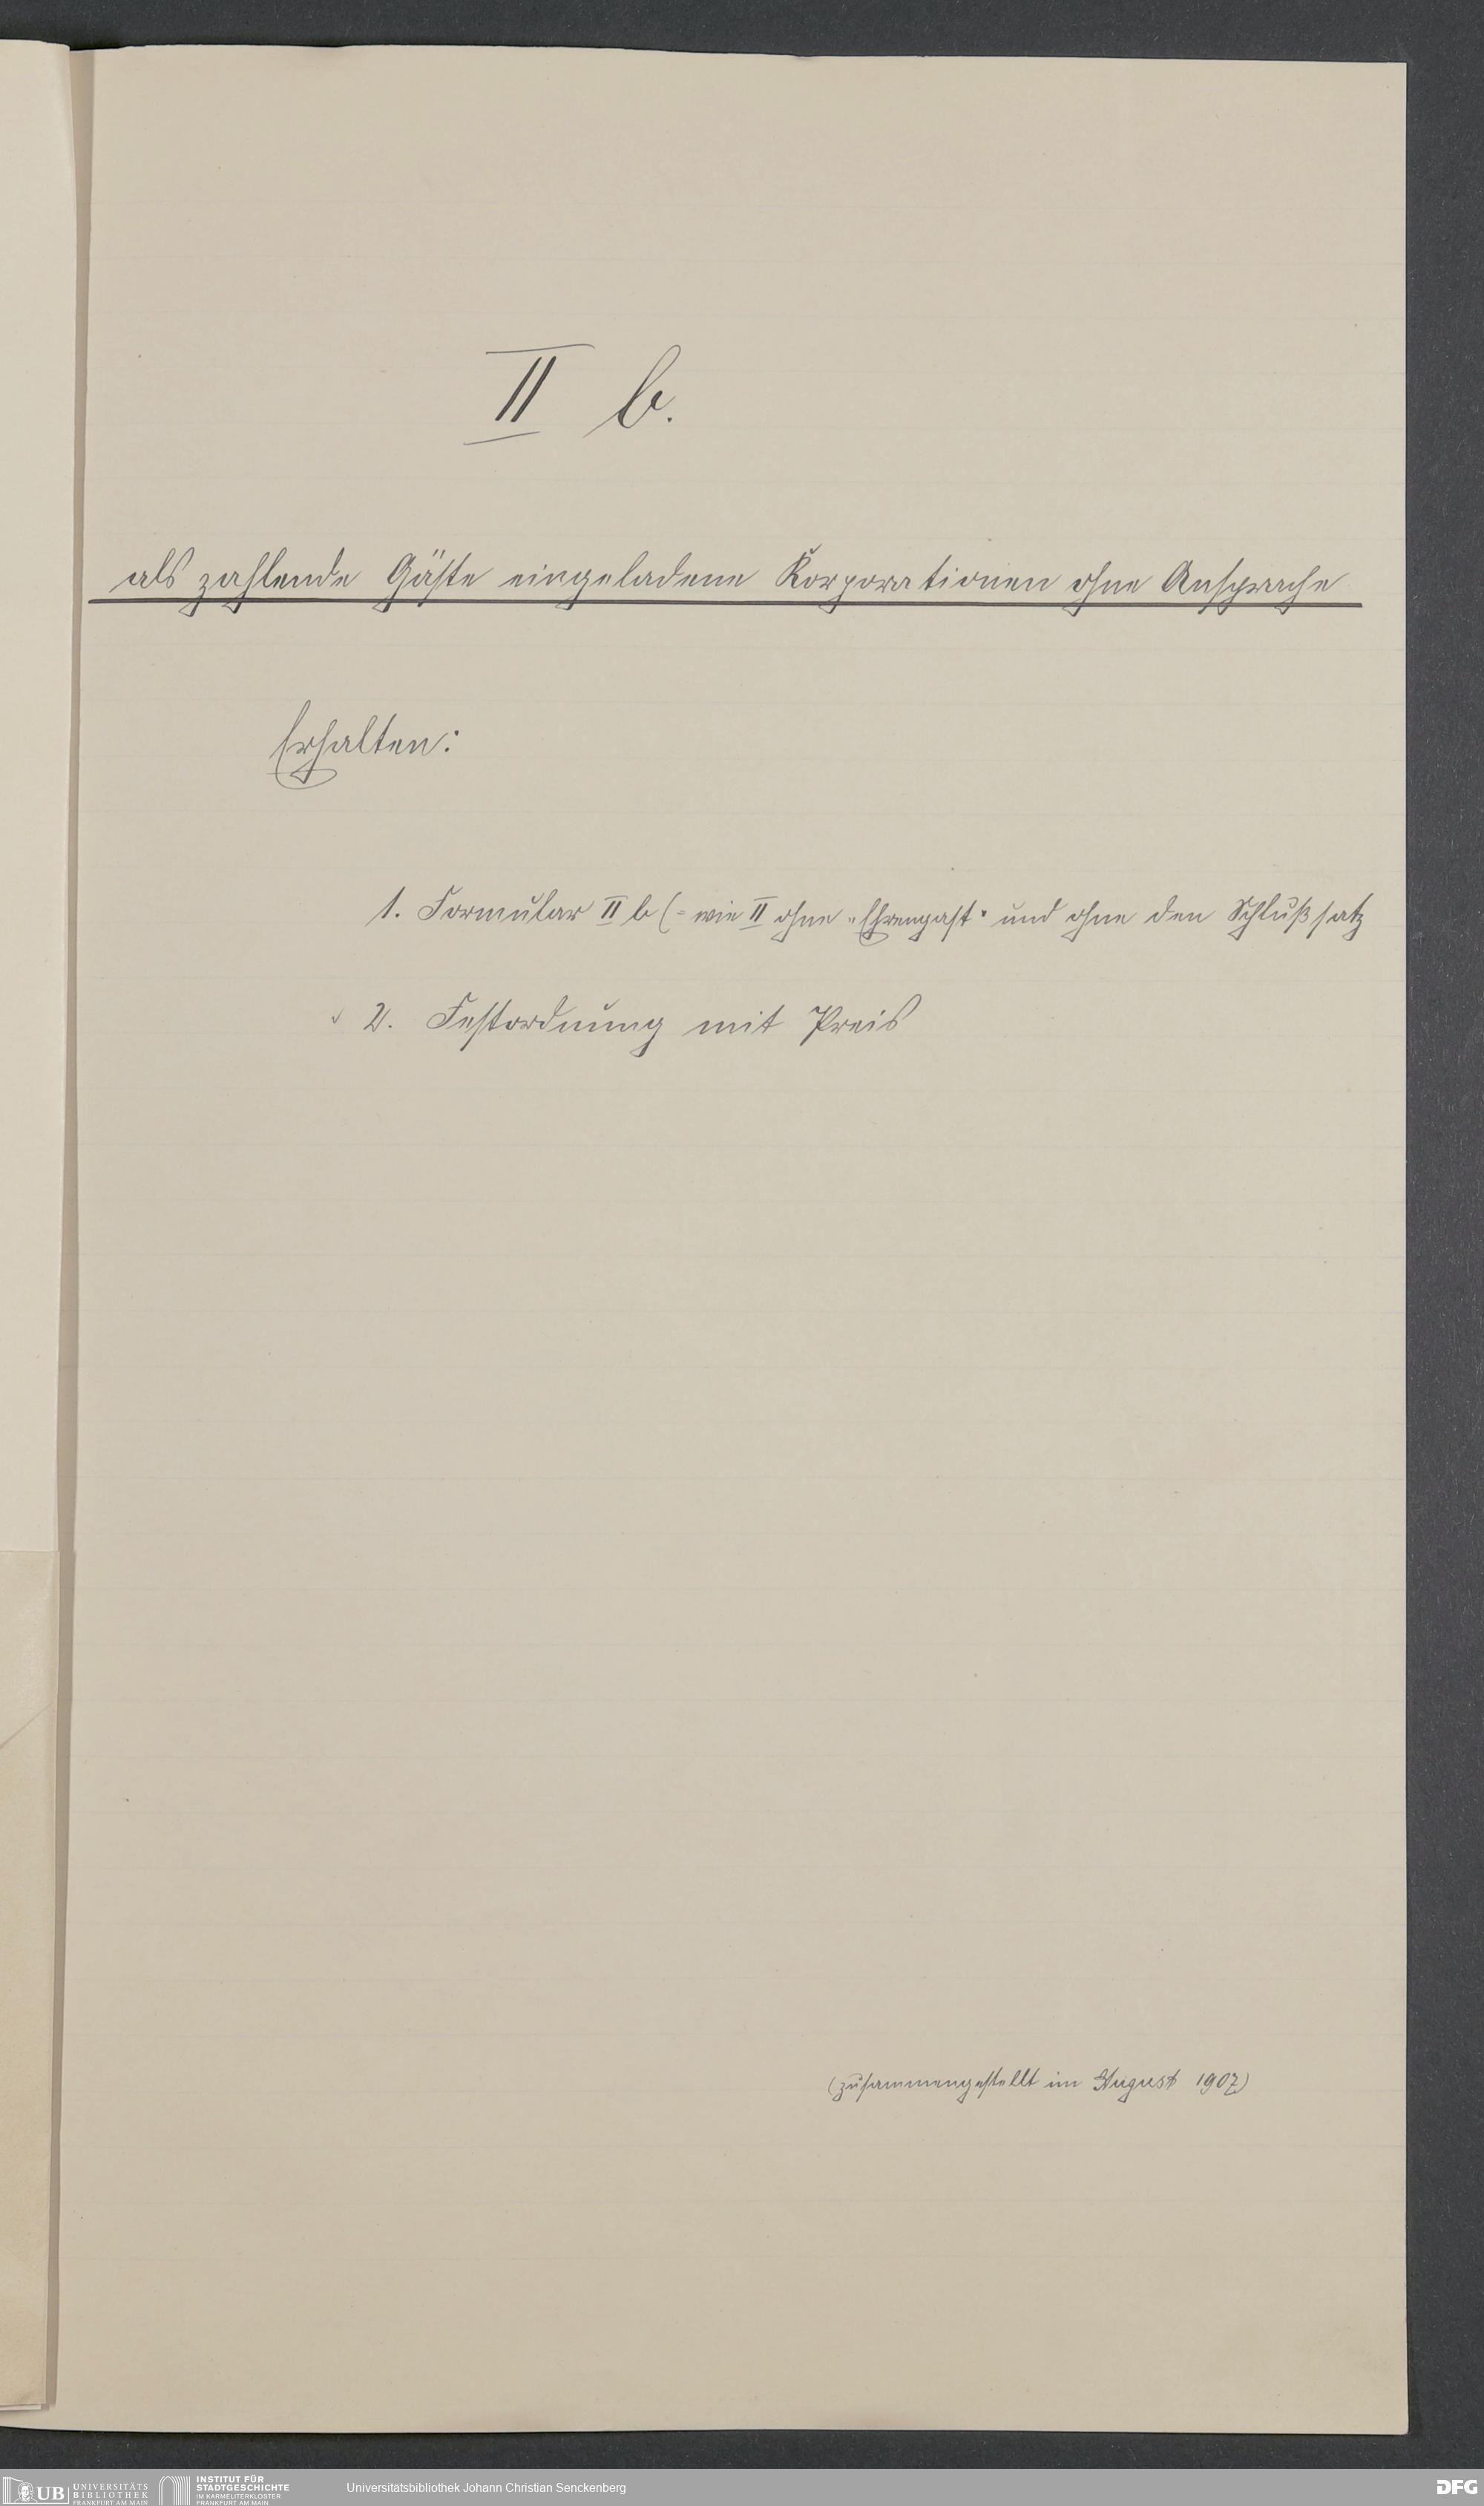 II b.
als zahlende Gäste eingeladene Korporationen ohne Ansprache
Erhalten:
1. Formular II b (= wie II ohne „Ehrengast" und ohne den Schlußsatz
✓ 2. Festordnung mit Preis
(zusammengestellt im August 1907)
UB UNIVERSITÄTS
BIBLIOTHEK
FRANKFURT AM MAIN
INSTITUT FÜR
STADTGESCHICHTE
IM KARMELITERKLOSTER
FRANKFURT AM MAIN
Universitätsbibliothek Johann Christian Senckenberg
DFG